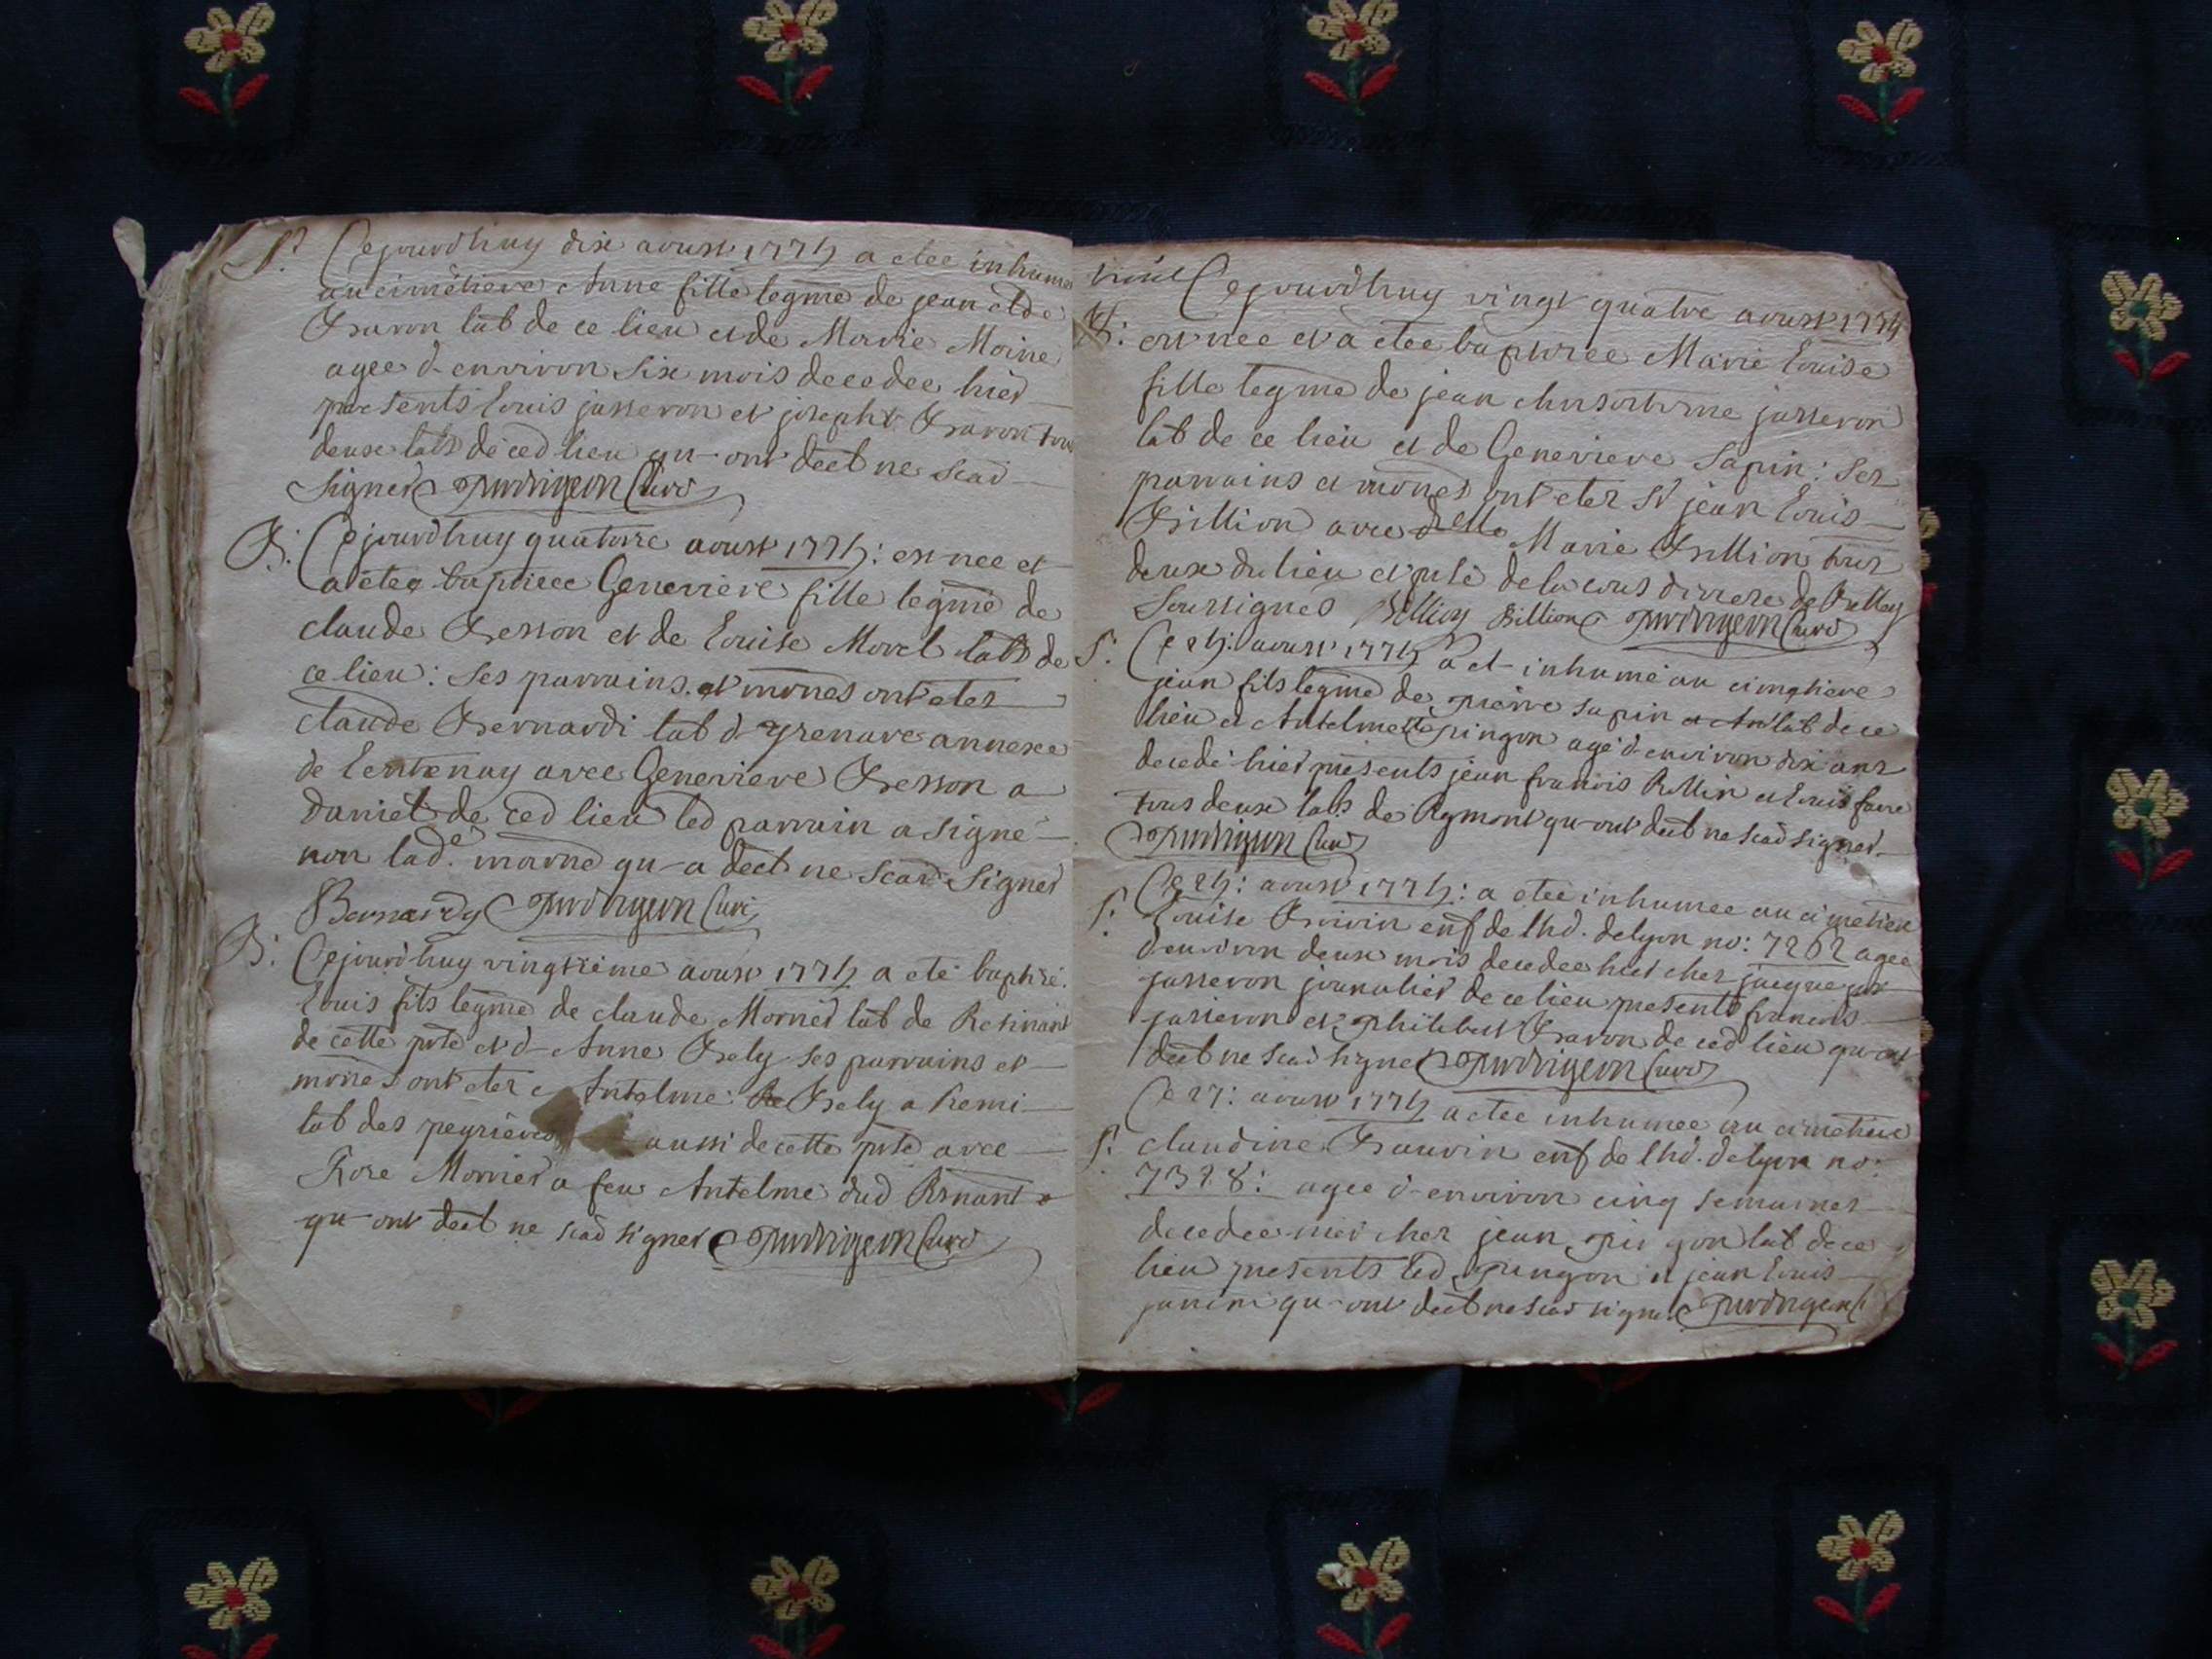 S. Cejourd'huy dix aoust 1774 a etee inhumee
au cimetiere Anne fille legme de jean
Bavon lab de ce lieu et de Marie Moine
agee d-environ six mois decedee hier
presents Louis jasseron et joseph Bavon tous
deux labs de ced lieu qu-ont decl ne scav
signer curé
B: Cejourd'huy quatorze aoust 1774: est nee et
a etee baptisee Genevieve fille legme de
claude Besson et de Louise Morel labs de
ce lieu: ses parrains et mrnes ont etes
claude Bernardi lab d' annexe
de Lentenay avec Genevieve Besson a
daniel de ced lieu led parrain a signé
non lade. marne qu-a decl ne scavr signer
Bernardy curé
B: Cejourd'huy vingtieme aoust 1774 a eté baptisé
Louis fils legme de claude Mornier lab de
de cette psse et d-Anne Bely ses parrains et
mrnes ont etes Antelme Bely a Remi
lab des peyrieres aussi de cette psse avec
Rose Mornier a feu Antelme dud
qu-ont decl ne scav signer curé
Cejourd'huy vingt quatre aoust 1774
B: est nee et a etee baptisee Marie Louise
fille legme de jean chrisostome jasseron
lab de ce lieu et de Genevieve Sapin: ses
parrains et mrnes ont etes Sr jean Louis
Billion avec delle Marie Billion tous
deux du lieu et psse de diocese de Belley
soussignés Billion Billion curé
S. Ce 24: aoust 1774 a et- inhumé au cimetiere
jean fils legme de pierre sapin lab de ce
lieu et Antelmette pingon agé d-environ dix ans
decedé hier presents jean francois Rollin et Louis favre
tous deux labs de qu-ont decl ne scav signer
curé
Ce 24: aoust 1774: a etee inhumee au cimetiere
S. Louise Boivin enf de lhd. de lyon no: 7262 agee
d'environ deux mois decedee hier chez jacque
jasseron journalier de ce lieu presents francois
jasseron et philibert Bavon de ced lieu qu-ont
decl ne scav signer curé
Ce 27: aoust 1774 a etee inhumee au cimetiere
S. claudine Bauvin enf de lhd. de lyon no:
7328: agee d-environ cinq semaines
decedee hier chez jean pingon lab de ce
lieu presents led pingon et jean Louis
janin qu-ont decl ne scav signer